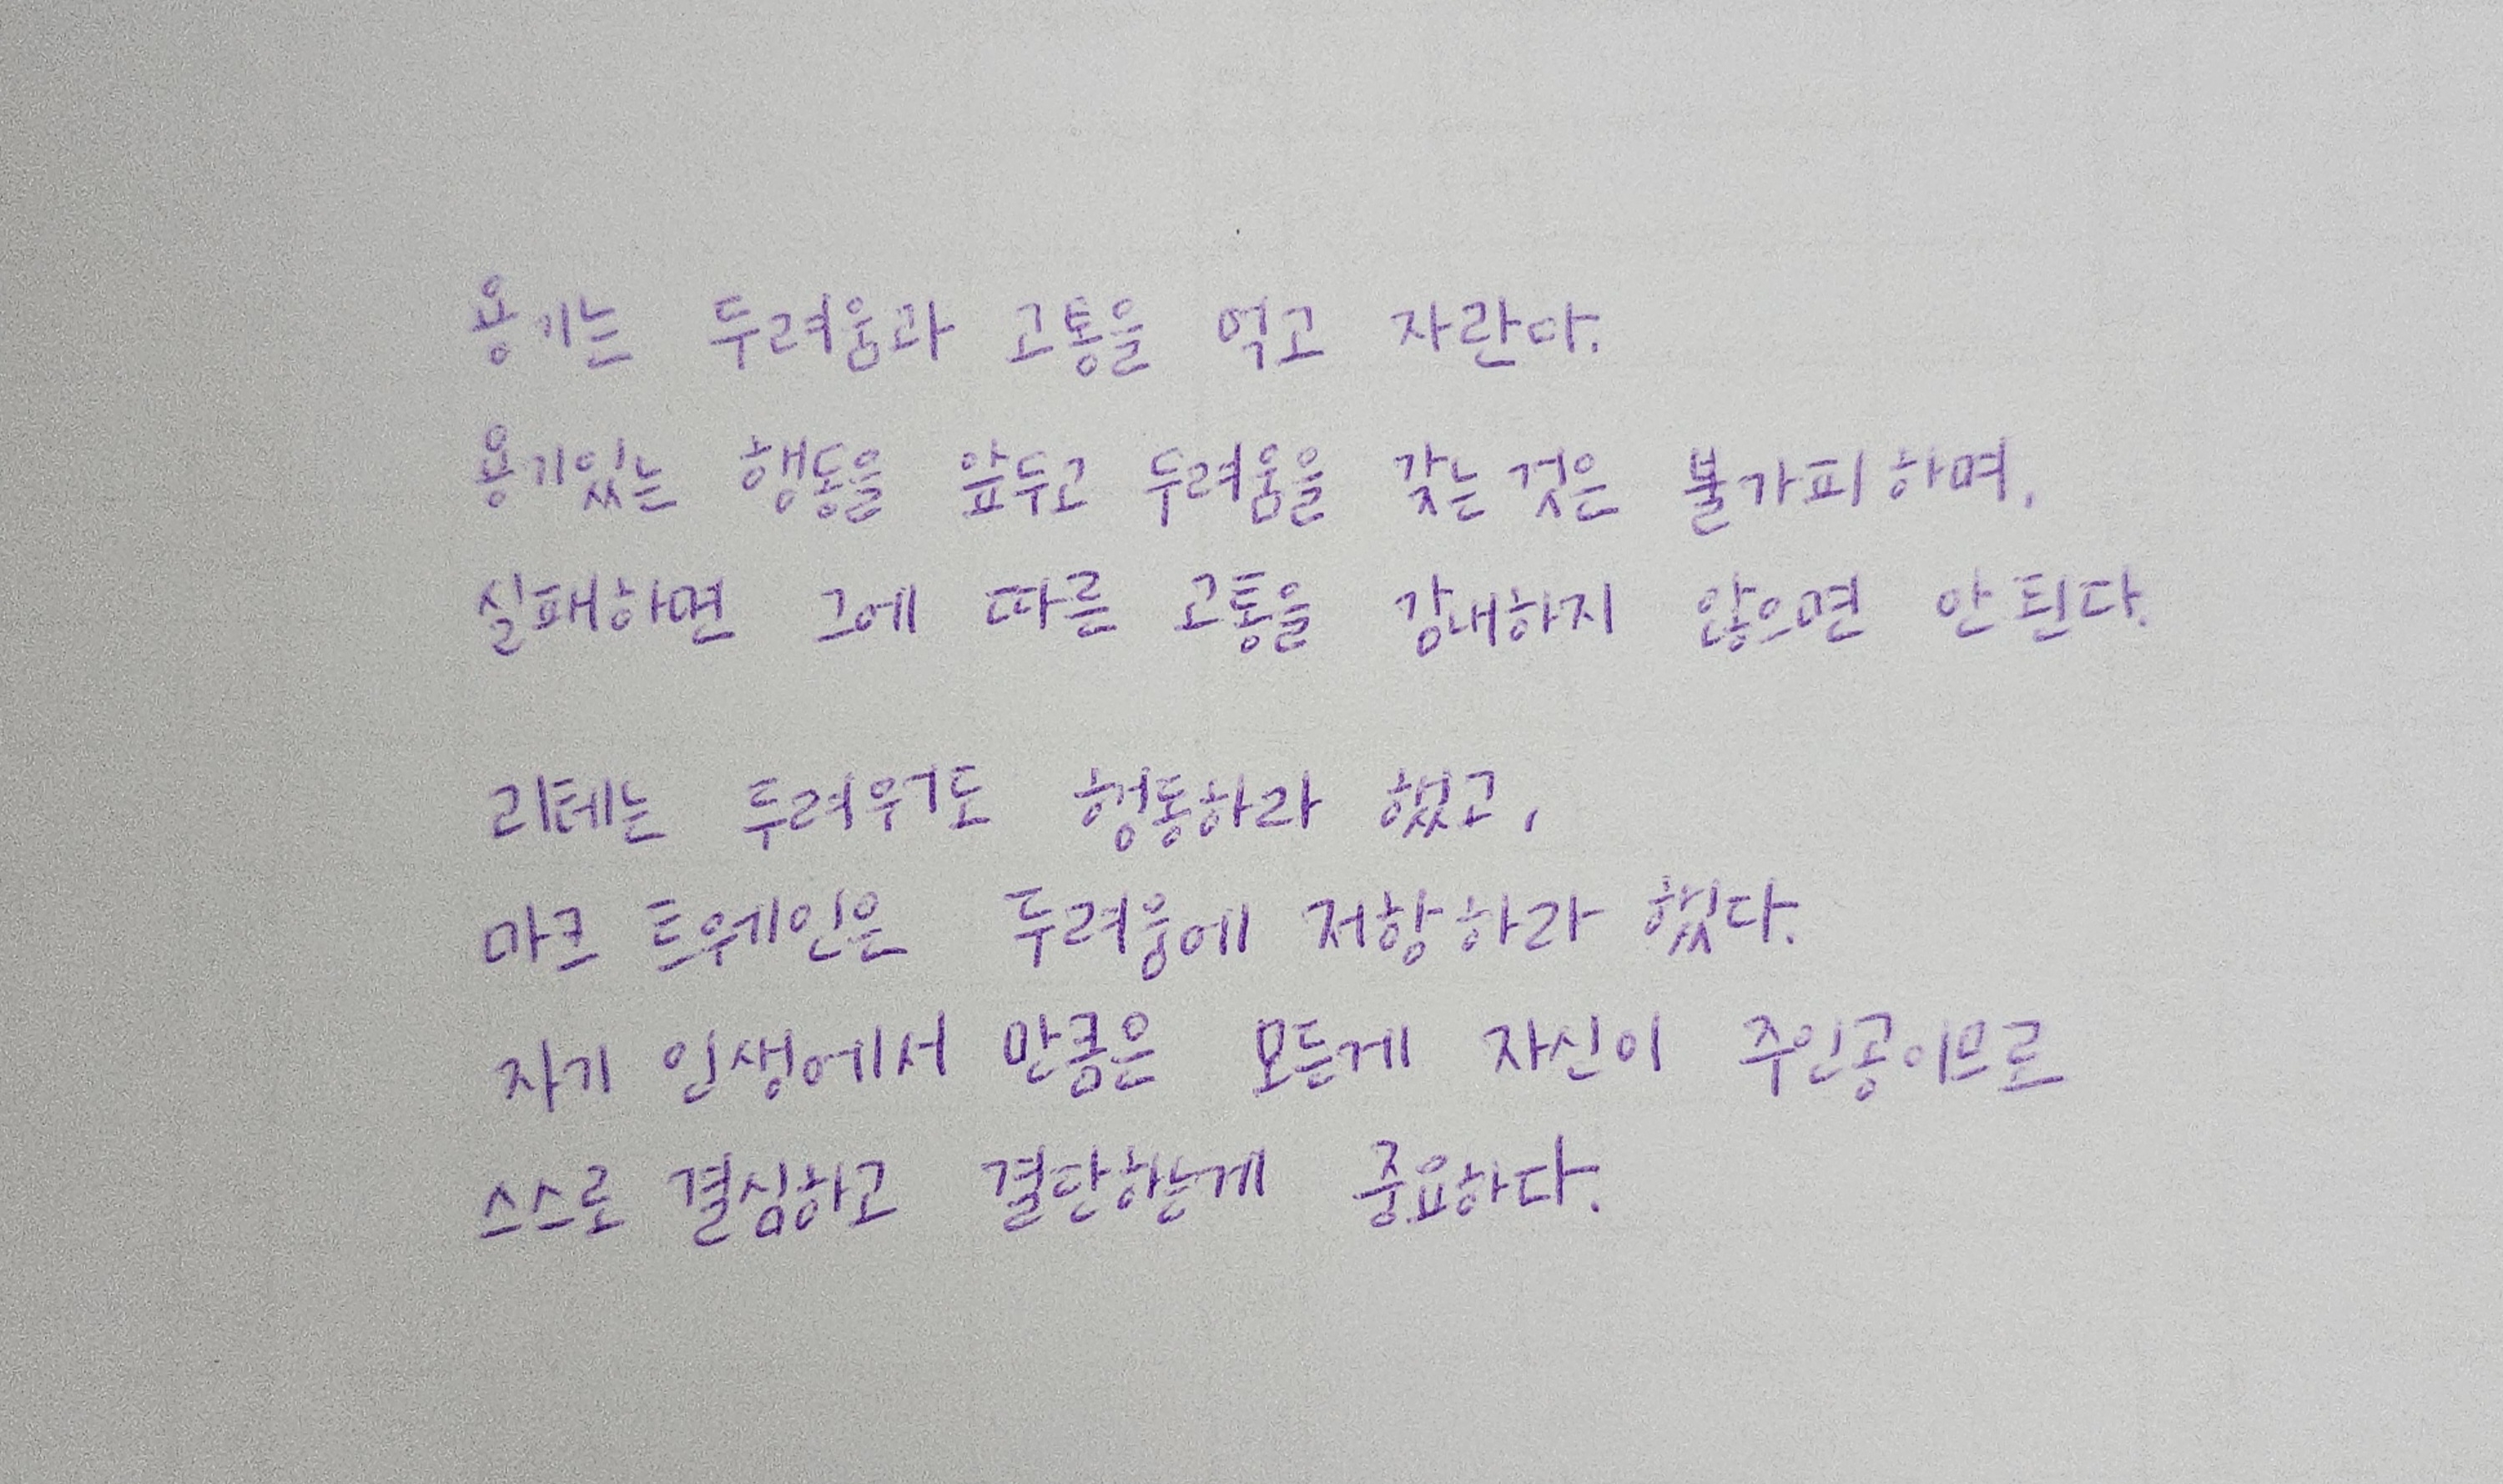 용기는 두려움과 고통을 먹고 자란다.
용기있는 행동을 앞두고 두려움을 갖는 것은 불가피하며,
실패하면 그에 따른 고통을 감내하지 않으면 안 된다.
괴테는 두려워도 행동하라 했고,
마크 트웨인은 두려움에 저항하라 했다.
자기 인생에서 만큼은 모든게 자신이 주인공이므로
스스로 결심하고 결단하는게 중요하다.